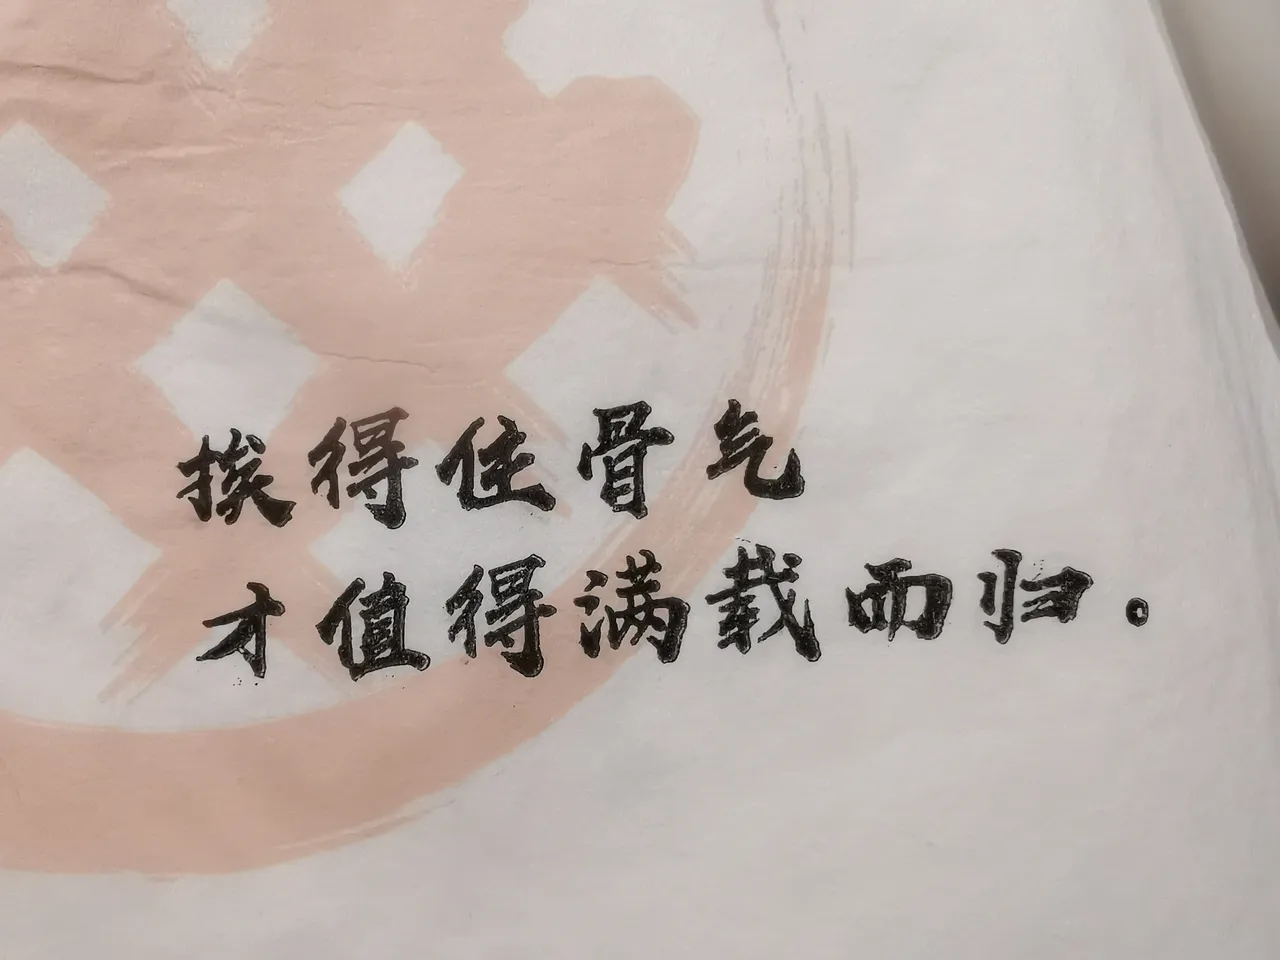 挨得住骨气
才值得满载而归。